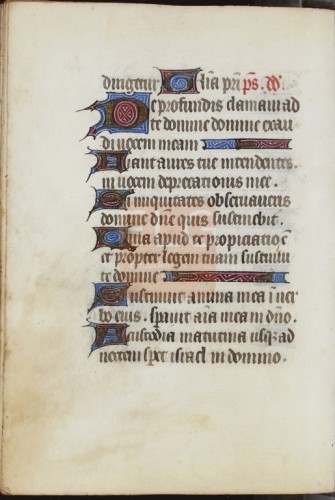 dirigetur Gl̄ia pr̄i p̄s. dd̄
De profundis clamaui ad
te domine domine exau
di uocem meam
Fiant aures tue intendentes.
in uocem deprecationis mee.
Si iniquitates obseruaueris
domine dn̄e quis sustinebit.
Quia apud te propiciatio ē
et propter legem tuam sustinui
te domine
Sustinuit anima mea ī uer
bo eius. sperauit aīa mea in dn̄o.
A custodia matutina usqȝ ad
noctem speret israel in domino.